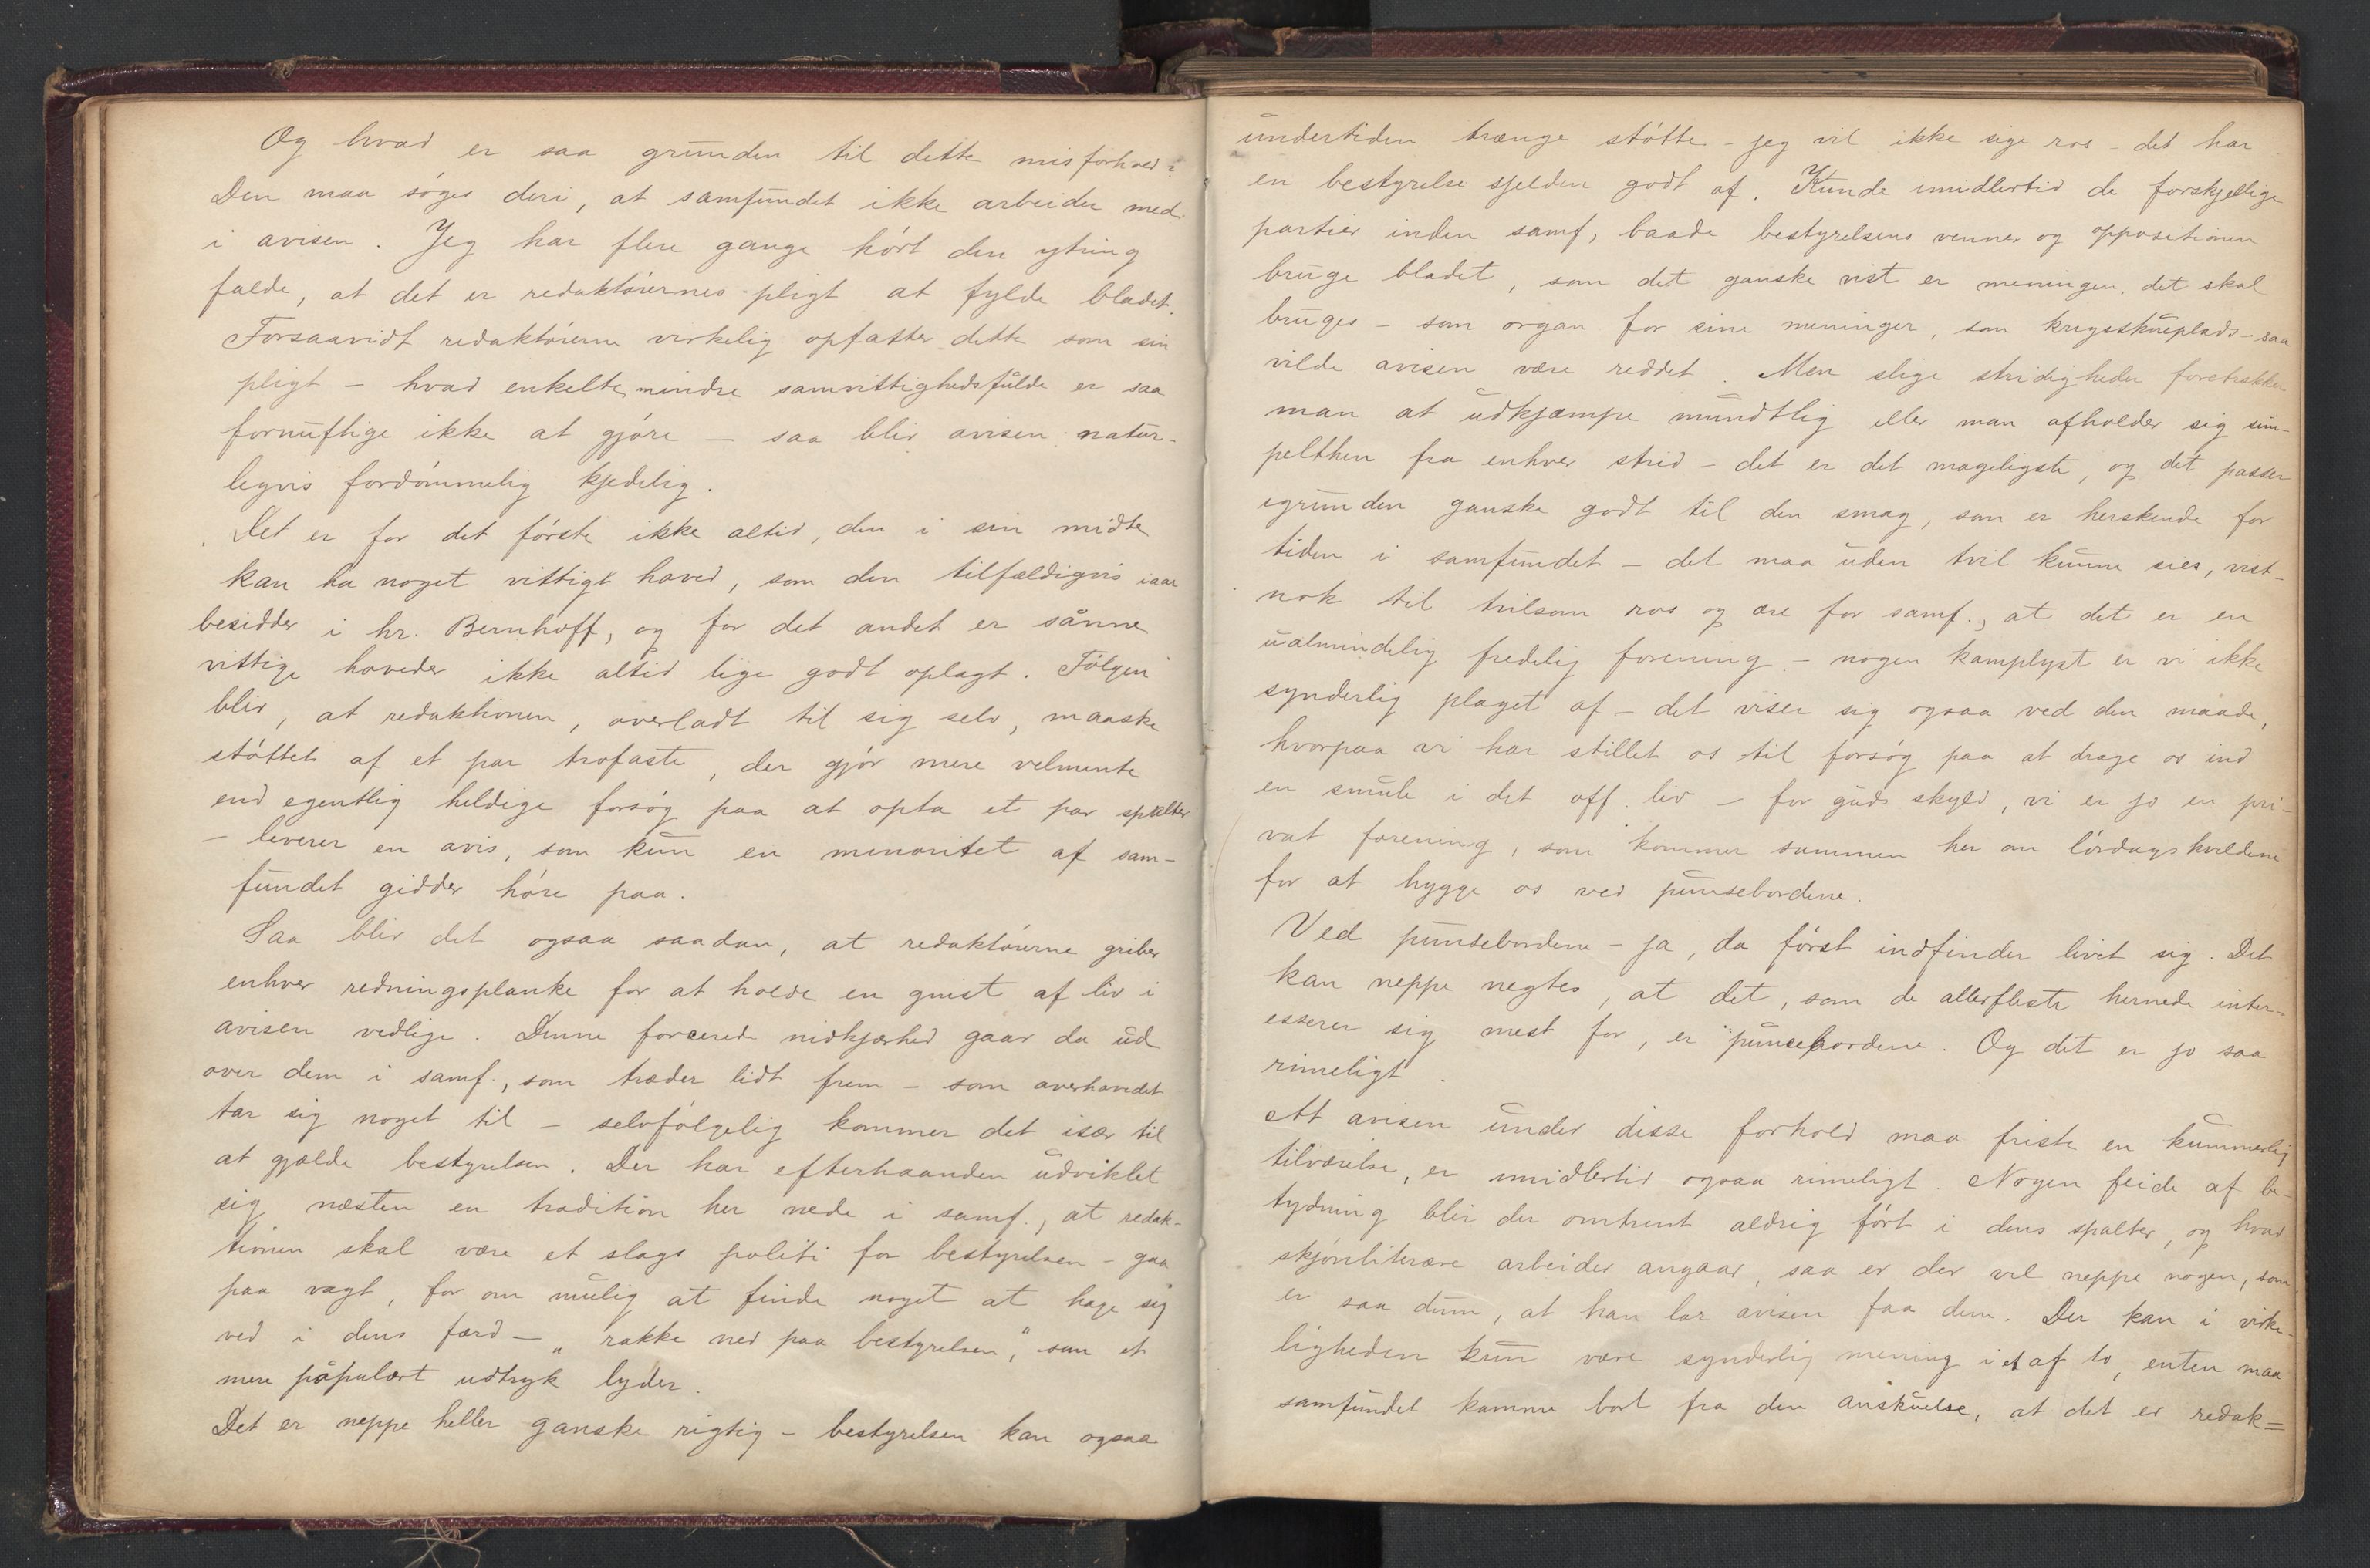 Og hvad er saa grunden til dette misforhold?
Den maa søges deri, at samfundet ikke arbeider med
i avisen. Jeg har flere gange hørt den ytring
falde, at det er redaktørernes pligt at fylde bladet.
Forsaavidt redaktørerne virkelig opfatter dette som sin
pligt – hvad enkelte mindre samvittighedsfulde er saa
fornuftige ikke at gjøre – saa blir avisen natur-
ligvis fordømmelig kjedelig.
Det er for det første ikke altid, den i sin midte
kan ha noget vittigt hoved, som den tilfældigvis iaar
besidder i hr. Bernhoff, og for det andet er sånne
vittige hoveder ikke altid lige godt oplagt. Følgen
blir, at redaktionen, overladt til sig selv, maaske
støttet af et par trofaste, der gjør mere velmente
end egentlig heldige forsøg paa at opta et par spalter
– leverer en avis, som kun en minoritet af sam-
fundet gidder høre paa.
Saa blir det ogsaa saadan, at redaktørerne griber
enhver redningsplanke for at holde en gnist af liv i
avisen vedlige. Denne forcerede nidkjærhed gaar da ud
over dem i samf., som træder lidt frem – som overhovedet
tar sig noget til – selvfølgelig kommer det især til
at gjælde bestyrelsen. Der har efterhaanden udviklet
sig næsten en tradition her nede i samf., at redak-
tionen skal være et slags politi for bestyrelsen – gaa
paa vagt, for om mulig at finde noget at hage sig
ved i dens færd – „rakke ned paa bestyrelsen“, som et
mere påpulært udtryk lyder.
Det er neppe heller ganske rigtig – bestyrelsen kan ogsaa
undertiden trænge støtte – jeg vil ikke sige ros – det har
en bestyrelse sjelden godt af. Kunde imidlertid de forskjellige
partier inden samf, baade bestyrelsens venner og oppositionen
bruge bladet, som det ganske vist er meningen, det skal
bruges – som organ for sine meninger, som krigsskueplads – saa
vilde avisen være reddet. Men slige stridigheder foretrækker
man at udkjæmpe mundtlig eller man afholder sig sim-
pelthen fra enhver strid – det er det mageligste, og det passer
igrunden ganske godt til den smag, som er herskende for
tiden i samfundet – det maa uden tvil kunne sies, vist-
nok til tvilsom ros og ære for samf., at det er en
ualmindelig fredelig forening – nogen kamplyst er vi ikke
synderlig plaget af – det viser sig ogsaa ved den maade,
hvorpaa vi har stillet os til forsøg paa at drage os ind
en smule i det off. liv – for guds skyld, vi er jo en pri-
vat forening, som kommer sammen her om lørdagskveldene
for at hygge os ved punsebordene.
Ved punsebordene – ja, da først indfinder livet sig. Det
kan neppe negtes, at det, som de allerfleste hernede inter-
esserer sig mest for, er punsebordene. Og det er jo saa
rimeligt.
At avisen under disse forhold maa friste en kummerlig
tilværelse, er imidlertid ogsaa rimeligt. Nogen feide af be-
tydning blir der omtrent aldrig ført i dens spalter, og hvad
skjønliterære arbeider angaar, saa er der vel neppe nogen, som
er saa dum, at han lar avisen faa dem. Der kan i virke-
ligheden kun være synderlig mening i et af to, enten maa
samfundet komme bort fra den anskuelse, at det er redak=